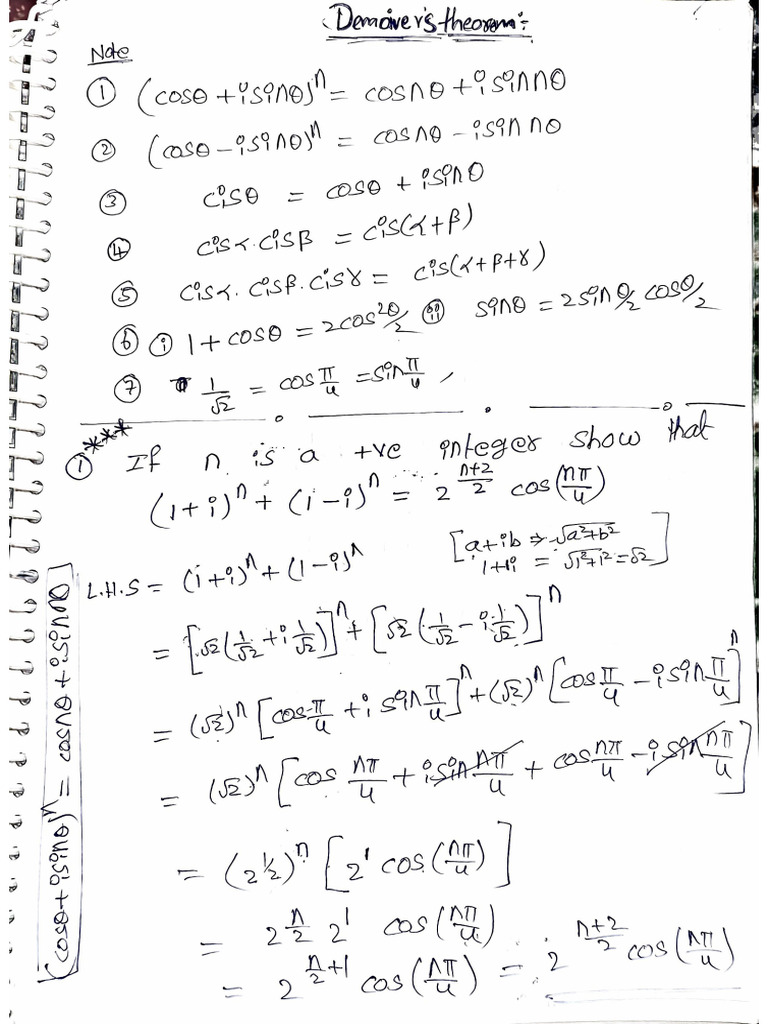 Demoiver's theorem:-
Note
① (cosθ + i sinθ)^n = cosnθ + i sin nθ
② (cosθ - i sinθ)^n = cosnθ - i sin nθ
③ cisθ = cosθ + i sinθ
④ cisα . cisβ = cis(α+β)
⑤ cisα . cisβ . cisγ = cis(α+β+γ)
⑥ ⓘ 1 + cosθ = 2cos²θ/2 ⓘⓘ sinθ = 2sinθ/2 cosθ/2
⑦ 1/√2 = cos π/4 = sin π/4,
① *** If n is a +ve integer show that
(1+i)^n + (1-i)^n = 2^((n+2)/2) cos(nπ/4)
[a+ib ⇒ √(a²+b²)
1+1i = √(1²+1²) = √2]
L.H.S = (1+i)^n + (1-i)^n
= [√2(1/√2 + i 1/√2)]^n + [√2(1/√2 - i 1/√2)]^n
= (√2)^n [cos π/4 + i sin π/4]^n + (√2)^n [cos π/4 - i sin π/4]^n
= (√2)^n [cos nπ/4 + i sin nπ/4 + cos nπ/4 - i sin nπ/4]
= (2^(1/2))^n [2^1 cos(nπ/4)]
= 2^(n/2) 2^1 cos(nπ/4)
= 2^(n/2+1) cos(nπ/4) = 2^((n+2)/2) cos(nπ/4)
(cosθ + i sinθ)^n = cosnθ + i sin nθ